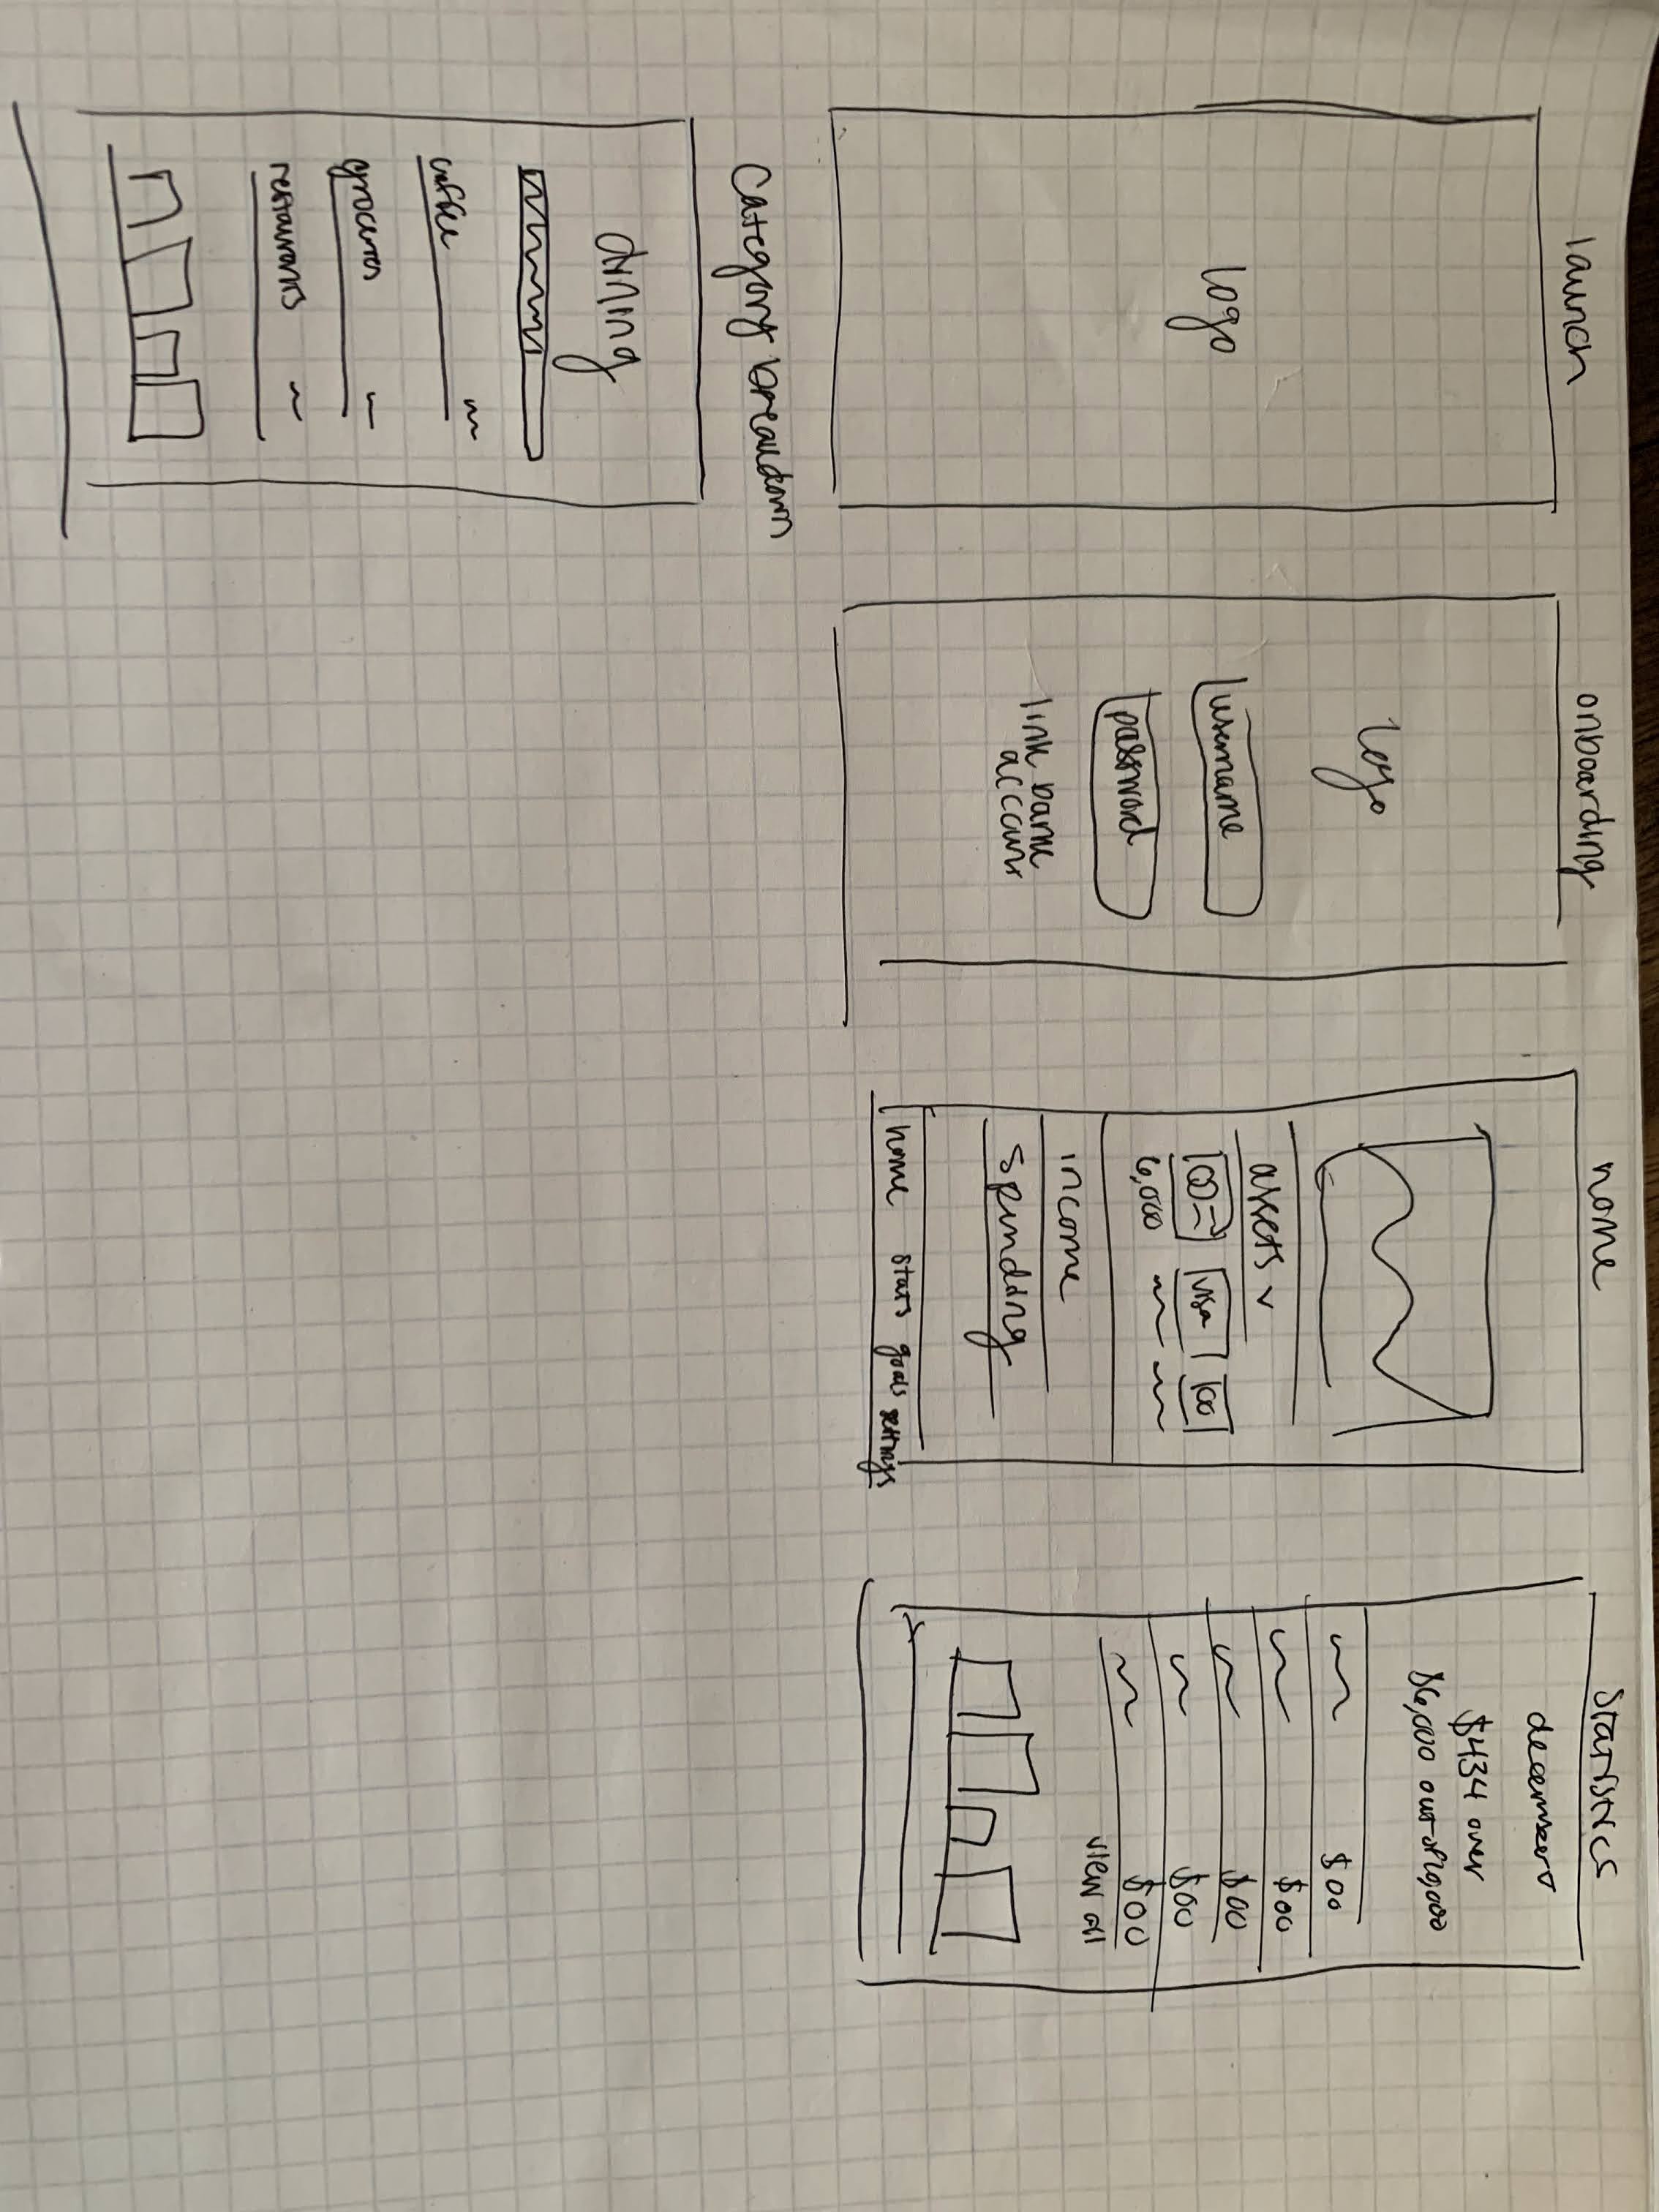 launch
logo
onboarding
logo
username
password
link bank
account
home
assets
visa
6,000
income
spending
home stats goals settings
Statistics
december
$434 over
$6,000 out of 10,000
$00
$00
$00
$00
$00
view all
Category breakdown
dining
coffee
groceries
restaurants